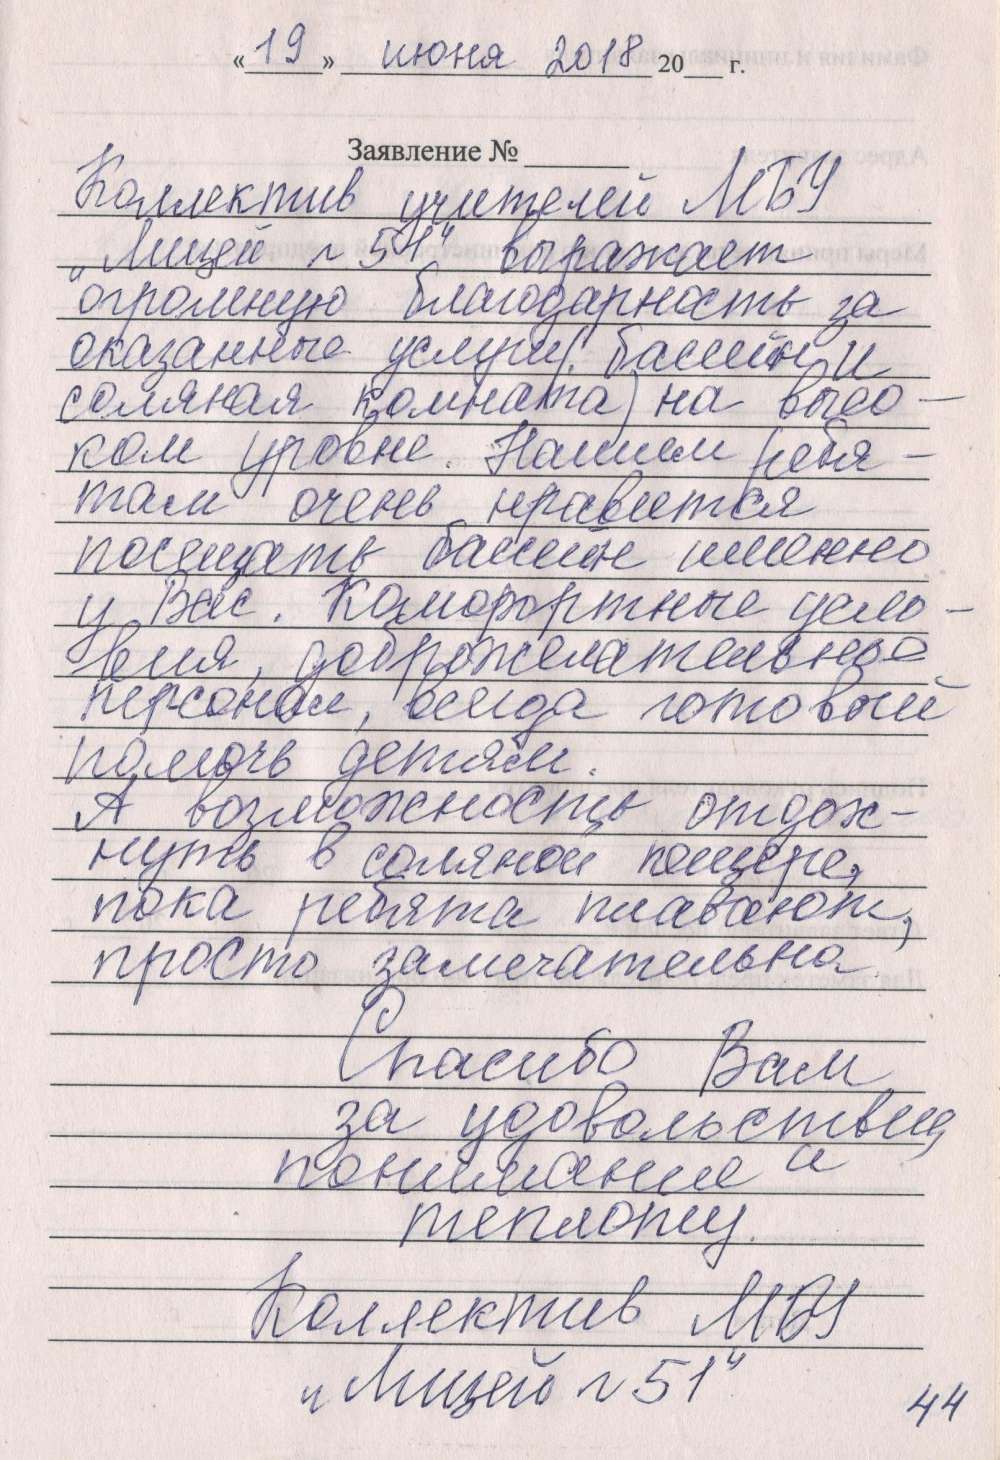 «19» июня 2018 20___ г.
Заявление № ______
Коллектив учителей МБУ
„Лицей № 51“ выражает
огромную благодарность за
оказанные услуги (бассейн и
соляная комната) на высо-
ком уровне. Нашим ребя-
там очень нравится
посещать бассейн именно
у Вас. Комфортные усло-
вия, доброжелательный
персонал, всегда готовый
помочь детям.
А возможность отдох-
нуть в соляной пещере,
пока ребята плавают,
просто замечательна.
Спасибо Вам
за удовольствие,
понимание и
теплоту.
Коллектив МБУ
„Лицей № 51“
44